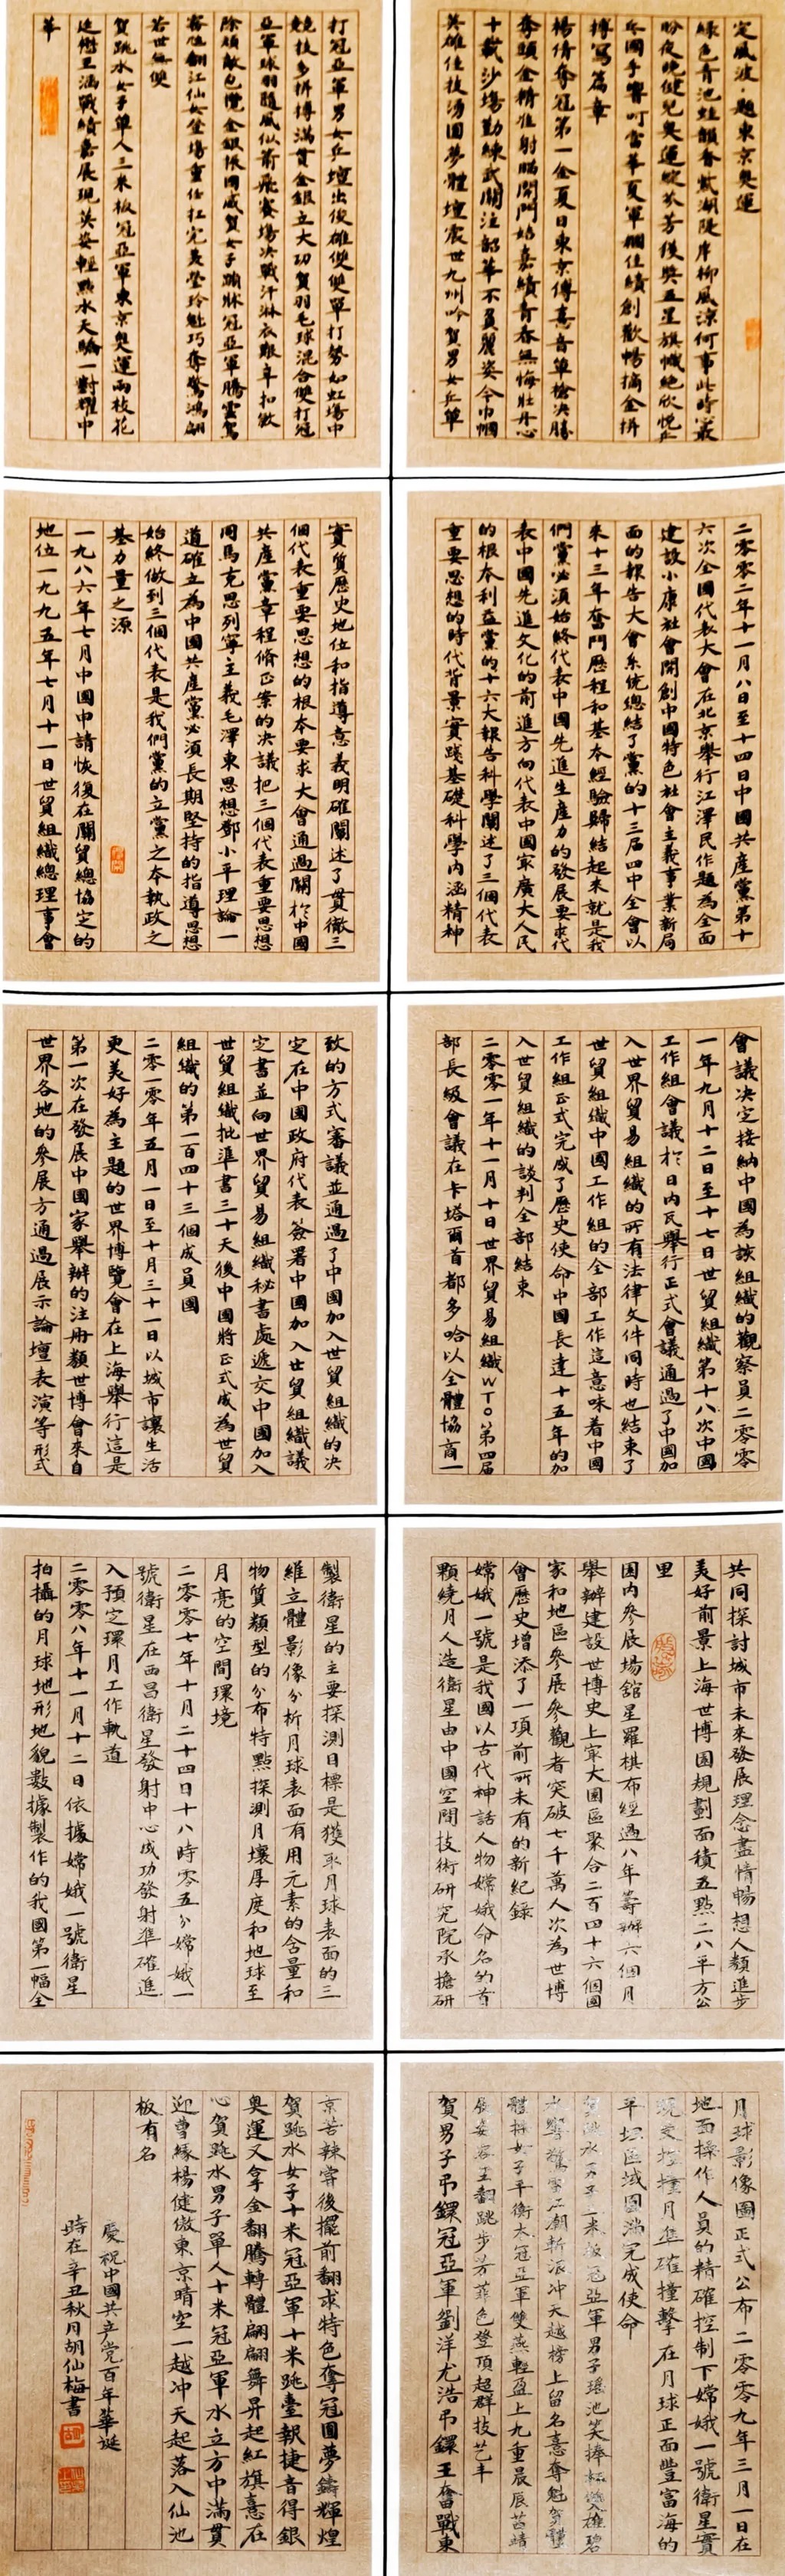 定風波·題東京奧運
綠色青池蛙韻香鷺湖隄岸柳風涼何事此時叢
盼夜晚健兒奧運綻芬芳後與五星旗幟絶欣悦乒
乓國手響叮當華夏軍團佳績創歡暢摘金拼
搏寫篇章
楊倩奪冠第一金夏日東京傳喜音單槍決勝
奪頭金精准射瞄開門始嘉績青春無悔壯丹心
十載沙場勤練武關注韶華不負麗姿今巾幗
英雄佳技湧圓夢體壇震世九州吟賀男女乒單
打冠亞軍男女乒壇出俊雄雙雙單打勢如虹場中
競技多拼搏滿貫金銀立大功賀羽毛球混合雙打冠
亞軍球羽隨風似箭飛賽場决戰汗淋衣艱辛扣殺
除頑敵包攬金銀振國威賀女子蹦牀冠亞軍騰雲駕
霧壯翻江仙女登場重任扛完美瑩玲魁巧奪驚鴻翩
若世無雙
賀跳水女子單人三米板冠亞軍東京奧運兩枝花
廷懋王涵戰績嘉展現英姿輕點水天驕一對耀中
華
二零零二年十一月八日至十四日中國共產黨第十
六次全國代表大會在北京舉行江澤民作題為全面
建設小康社會開創中國特色社會主義事業新局
面的報告大會系統總結了黨的十三届四中全會以
來十三年奮鬥歷程和基本經驗歸結起來就是我
們黨必須始終代表中國先進生產力的發展要求代
表中國先進文化的前進方向代表中國最廣大人民
的根本利益黨的十六大報告科學闡述了三個代表
重要思想的時代背景實踐基礎科學内涵精神
實質歷史地位和指導意義明確闡述了貫徹三
個代表重要思想的根本要求大會通過關於中國
共產黨章程脩正案的決議把三個代表重要思想
同馬克思列寧主義毛澤東思想鄧小平理論一
道確立為中國共產黨必須長期堅持的指導思想
始終做到三個代表是我們黨的立黨之本執政之
基力量之源
一九八六年七月中國申請恢復在關貿總協定的
地位一九九五年七月十一日世貿組織總理事會
會議决定接納中國為該組織的觀察員二零零
一年九月十二日至十七日世貿組織第十八次中國
工作組會議於日内瓦舉行正式會議通過了中國加
入世界貿易組織的所有法律文件同時也結束了
世貿組織中國工作組的全部工作這意味着中國
工作組正式完成了歷史使命中國長達十五年的加
入世貿組織的談判全部結束
二零零一年十一月十日世界貿易組織WTO第四届
部長級會議在卡塔爾首都多哈以全體協商一
致的方式審議並通過了中國加入世貿組織的决
定在中國政府代表簽署中國加入世貿組織議
定書並向世界貿易組織秘書處遞交中國加入
世貿組織批準書三十天後中國將正式成為世貿
組織的第一百四十三個成員國
二零一零年五月一日至十月三十一日以城市讓生活
更美好為主題的世界博覽會在上海舉行這是
第一次在發展中國家舉辦的注册類世博會來自
世界各地的參展方通過展示論壇表演等形式
共同探討城市未來發展理念盡情暢想人類進步
美好前景上海世博園規劃面積五點二八平方公
里
園内參展場館星羅棋布經過八年籌辦六個月
舉辦建設世博史上最大園區聚合二百四十六個國
家和地區參展參觀者突破七千萬人次為世博
會歷史增添了一項前所未有的新紀錄
嫦娥一號是我國以古代神話人物嫦娥命名的首
顆繞月人造衛星由中國空間技術研究院承擔研
製衛星的主要探測目標是獲取月球表面的三
維立體影像分析月球表面有用元素的含量和
物質類型的分布特點探測月壤厚度和地球至
月亮的空間環境
二零零七年十月二十四日十八時零五分嫦娥一
號衛星在西昌衛星發射中心成功發射準確進
入預定環月工作軌道
二零零八年十一月十二日依據嫦娥一號衛星
拍攝的月球地形地貌數據製作的我國第一幅全
月球影像圖正式公布二零零九年三月一日在
地面操作人員的精確控制下嫦娥一號衛星實
現受控撞月準確撞擊在月球正面豐富海的
平坦區域圓滿完成使命
賀跳水男子三米板冠亞軍男子瑶池笑捧杯雙雄碧
水響驚雷江湖新派冲天越榜上留名喜奪魁賀體
體操女子平衡木冠亞軍雙燕輕盈上九重晨辰茜靖
展姿容王翻跳步芳菲色登頂超群技艺丰
賀男子吊鐶冠亞軍劉洋尤浩吊鐶王奮戰東
京苦辣嘗後擺前翻求特色奪冠圓夢鑄輝煌
賀跳水女子十米冠亞軍十米跳臺報捷音得銀
奧運又拿金翻騰轉體翩翩舞昇起紅旗憙在
心賀跳水男子單人十米冠亞軍水立方中滿貫
迎曹緣楊健傲東京晴空一越冲天起落入仙池
板有名
慶祝中國共产党百年華誕
時在辛丑秋月胡仙梅書